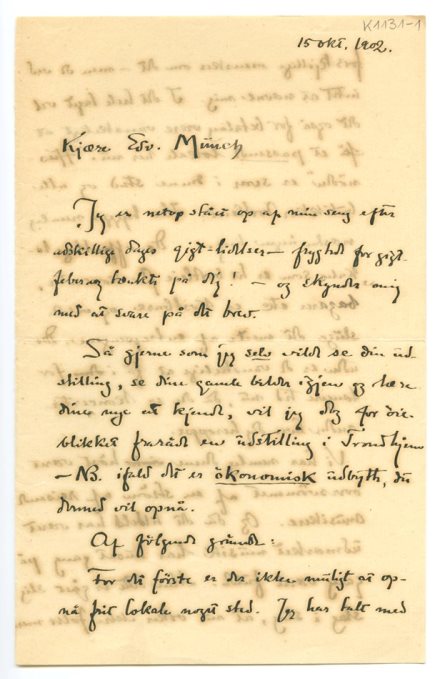 K1131-1
15 Okt. 1902.
Kjære Edv. Münch
Jeg er netop stået op af min seng efter
adskillige dages gigt-lidelser — frygted for gigt-
feber og tænkte på dig! — og skynder mig
med at svare på dit brev.
Så gjerne som jeg selv vilde se din ud-
stilling, se dine gamle bilder igjen og lære
dine nye at kjende, vil jeg dog for öie-
blikket fraråde en üdstilling i Trondhjem
— NB. ifald det er ökonomisk üdbytte, du
dermed vil opnå.
Af fölgende gründe:
For det förste er der ikke müligt at op-
nå frit lokale noget sted. Jeg har talt med